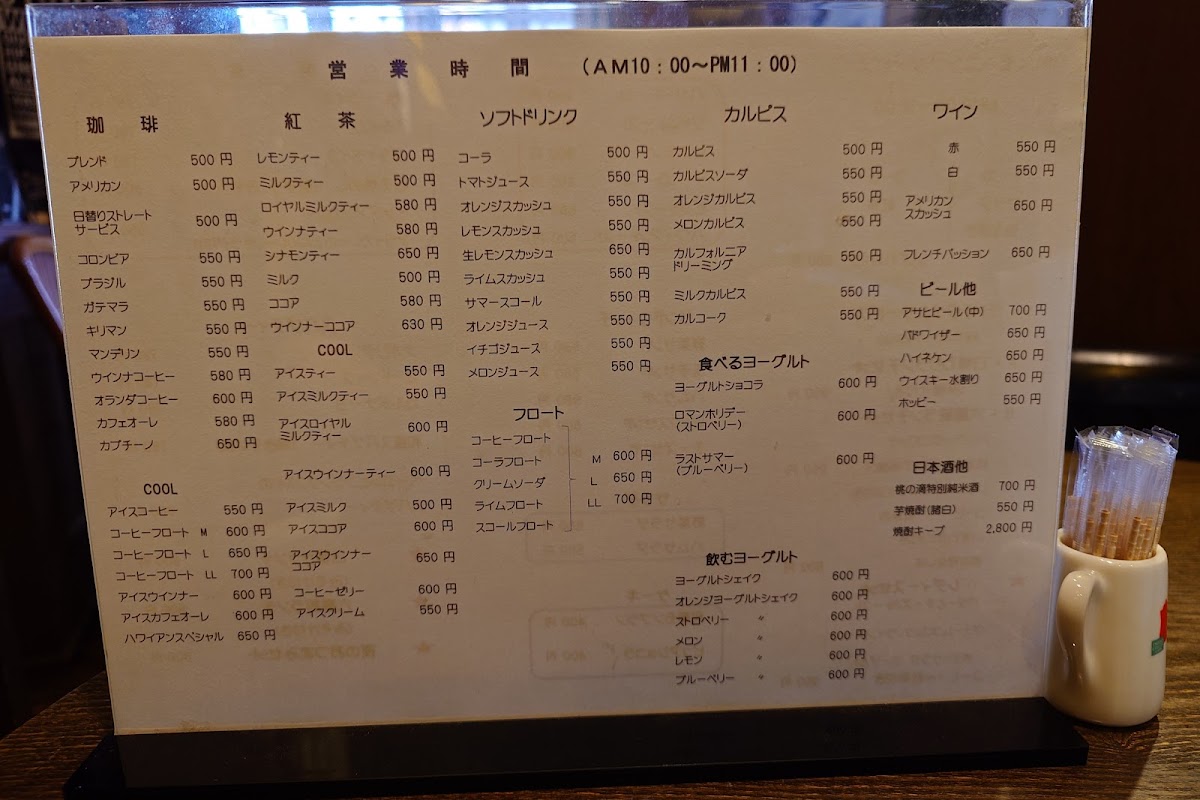 営業時間 (AM10:00～PM11:00)
珈琲
ブレンド 500円
アメリカン 500円
日替りストレート
サービス 500円
コロンビア 550円
ブラジル 550円
ガテマラ 550円
キリマン 550円
マンデリン 550円
ウインナコーヒー 580円
オランダコーヒー 600円
カフェオーレ 580円
カプチーノ 650円
COOL
アイスコーヒー 550円
コーヒーフロート M 600円
コーヒーフロート L 650円
コーヒーフロート LL 700円
アイスウインナー 600円
アイスカフェオーレ 600円
ハワイアンスペシャル 650円
紅茶
レモンティー 500円
ミルクティー 500円
ロイヤルミルクティー 580円
ウインナティー 580円
シナモンティー 650円
ミルク 500円
ココア 580円
ウインナーココア 630円
COOL
アイスティー 550円
アイスミルクティー 550円
アイスロイヤル
ミルクティー 600円
アイスウインナーティー 600円
アイスミルク 500円
アイスココア 600円
アイスウインナー
ココア 650円
コーヒーゼリー 600円
アイスクリーム 550円
ソフトドリンク
コーラ 500円
トマトジュース 550円
オレンジスカッシュ 550円
レモンスカッシュ 550円
生レモンスカッシュ 650円
ライムスカッシュ 550円
サマースコール 550円
オレンジジュース 550円
イチゴジュース 550円
メロンジュース 550円
フロート
コーヒーフロート
コーラフロート M 600円
クリームソーダ L 650円
ライムフロート LL 700円
スコールフロート
カルピス
カルピス 500円
カルピスソーダ 550円
オレンジカルピス 550円
メロンカルピス 550円
カルフォルニア
ドリーミング 550円
ミルクカルピス 550円
カルコーク 550円
食べるヨーグルト
ヨーグルトショコラ 600円
ロマンホリデー
(ストロベリー) 600円
ラストサマー
(ブルーベリー) 600円
飲むヨーグルト
ヨーグルトシェイク 600円
オレンジヨーグルトシェイク 600円
ストロベリー 〃 600円
メロン 〃 600円
レモン 〃 600円
ブルーベリー 〃 600円
ワイン
赤 550円
白 550円
アメリカン
スカッシュ 650円
フレンチパッション 650円
ビール他
アサヒビール(中) 700円
バドワイザー 650円
ハイネケン 650円
ウイスキー水割り 650円
ホッピー 550円
日本酒他
桃の滴特別純米酒 700円
芋焼酎(諸白) 550円
焼酎キープ 2,800円